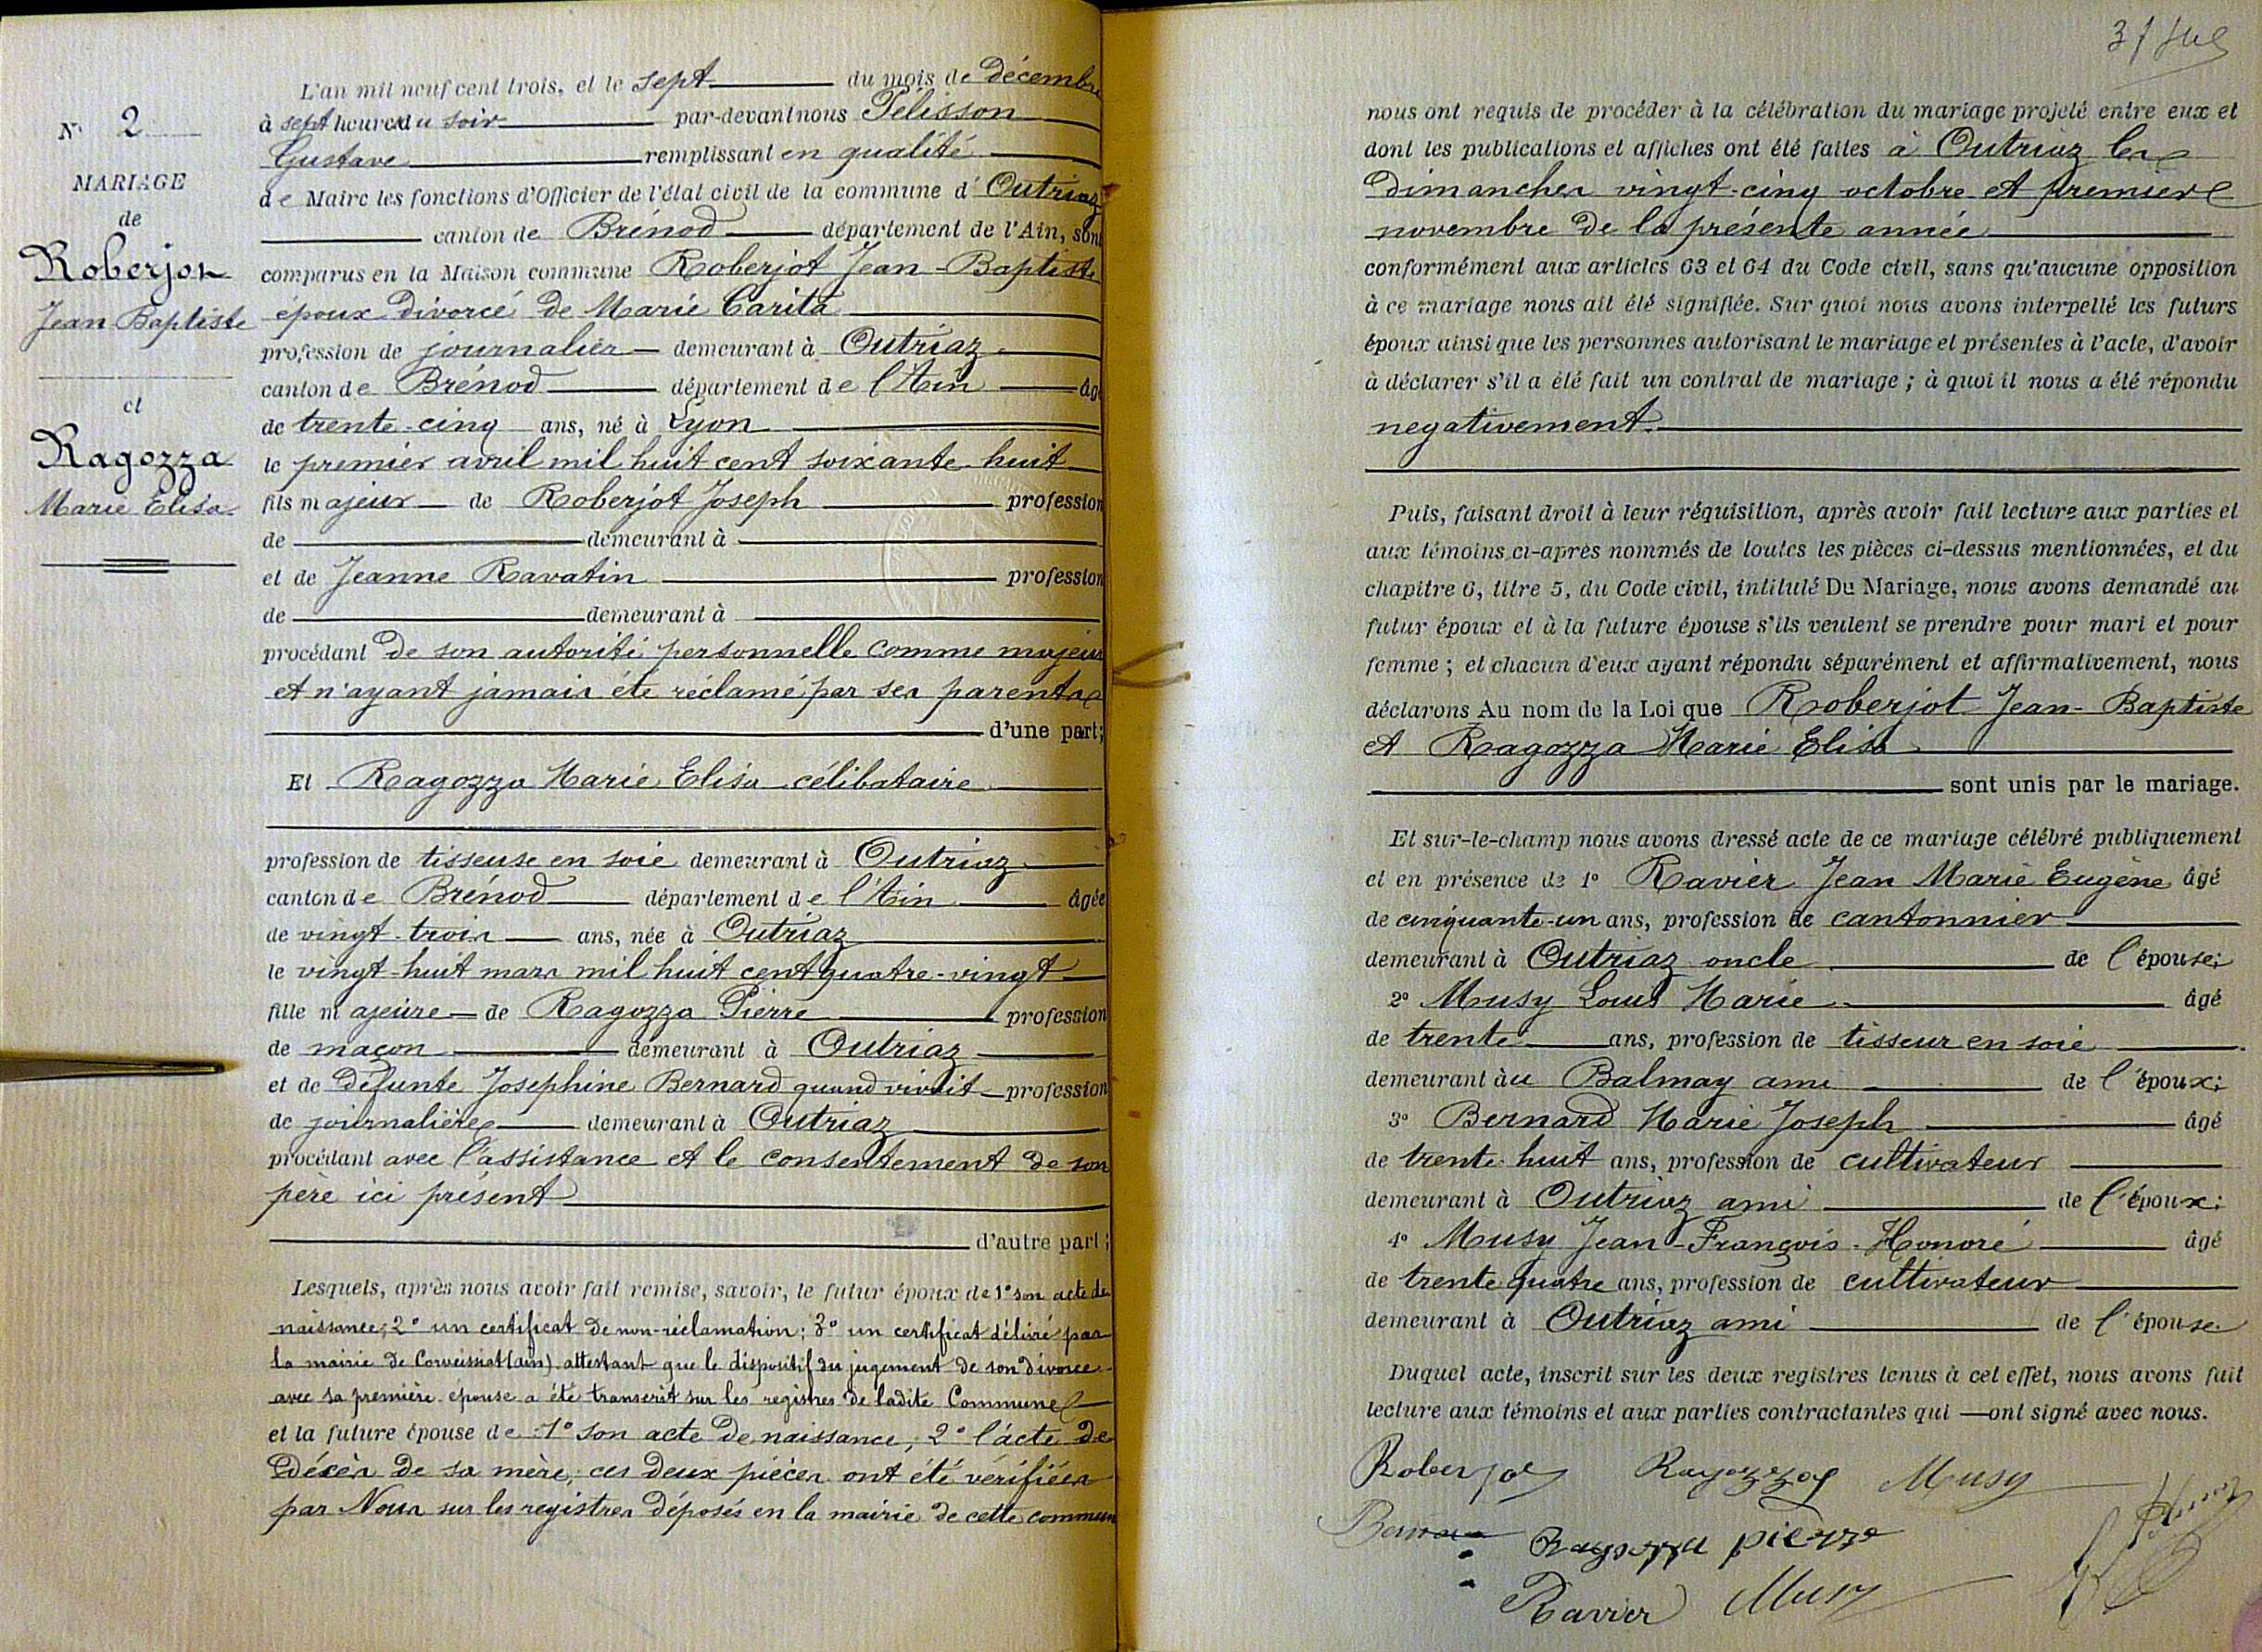 N° 2
MARIAGE
de
Roberjot
Jean Baptiste
et
Ragozza
Marie Elisa
L'an mil neuf cent trois, et le sept du mois de Décembre
à sept heures du soir par-devant nous Pélisson
Gustave remplissant en qualité
de Maire les fonctions d'Officier de l'état civil de la commune d' Outriaz
canton de Brénod département de l'Ain, sont
comparus en la Maison commune Roberjot Jean-Baptiste
époux divorcé de Marie Carita
profession de journalier demeurant à Outriaz
canton de Brénod département de l'Ain âgé
de trente-cinq ans, né à Lyon
le premier avril mil huit cent soixante-huit
fils majeur de Roberjot Joseph profession
de demeurant à
et de Jeanne Ravatin profession
de demeurant à
procédant de son autorité personnelle comme majeur
et n'ayant jamais été réclamé par ses parents
d'une part;
Et Ragozza Marie Elisa célibataire
profession de tisseuse en soie demeurant à Outriaz
canton de Brénod département de l'Ain âgée
de vingt-trois ans, née à Outriaz
le vingt-huit mars mil huit cent quatre-vingt
fille majeure de Ragozza Pierre profession
de maçon demeurant à Outriaz
et de défunte Josephine Bernard quand vivait profession
de journalière demeurant à Outriaz
procédant avec l'assistance et le consentement de son
père ici présent
d'autre part;
Lesquels, après nous avoir fait remise, savoir, le futur époux de 1° son acte de
naissance; 2° un certificat de non-réclamation; 3° un certificat délivré par
la mairie de Corveissiat (ain) attestant que le dispositif du jugement de son divorce
avec sa première épouse a été transcrit sur les registres de ladite Commune
et la future épouse de 1° son acte de naissance, 2° l'acte de
décès de sa mère; ces deux pièces ont été vérifiées
par Nous sur les registres déposés en la mairie de cette commune
nous ont requis de procéder à la célébration du mariage projeté entre eux et
dont les publications et affiches ont été faites à Outriaz les
dimanches vingt-cinq octobre et premier
novembre de la présente année
conformément aux articles 63 et 64 du Code civil, sans qu'aucune opposition
à ce mariage nous ait été signifiée. Sur quoi nous avons interpellé les futurs
époux ainsi que les personnes autorisant le mariage et présentes à l'acte, d'avoir
à déclarer s'il a été fait un contrat de mariage; à quoi il nous a été répondu
negativement.
Puis, faisant droit à leur réquisition, après avoir fait lecture aux parties et
aux témoins ci-après nommés de toutes les pièces ci-dessus mentionnées, et du
chapitre 6, titre 5, du Code civil, intitulé Du Mariage, nous avons demandé au
futur époux et à la future épouse s'ils veulent se prendre pour mari et pour
femme; et chacun d'eux ayant répondu séparément et affirmativement, nous
déclarons Au nom de la Loi que Roberjot Jean-Baptiste
et Ragozza Marie Elisa
sont unis par le mariage.
Et sur-le-champ nous avons dressé acte de ce mariage célébré publiquement
et en présence de 1° Ravier Jean Marie Eugène âgé
de cinquante-un ans, profession de cantonnier
demeurant à Outriaz oncle de l'épouse;
2° Musy Louis Marie âgé
de trente ans, profession de tisseur en soie
demeurant au Balmay ami de l'époux;
3° Bernard Marie Joseph âgé
de trente-huit ans, profession de cultivateur
demeurant à Outriaz ami de l'époux;
4° Musy Jean-François-Honoré âgé
de trente quatre ans, profession de cultivateur
demeurant à Outriaz ami de l'épouse
Duquel acte, inscrit sur les deux registres tenus à cet effet, nous avons fait
lecture aux témoins et aux parties contractantes qui ont signé avec nous.
Roberjot Ragozza Musy
Bernard Ragozza pierre
Ravier Musy